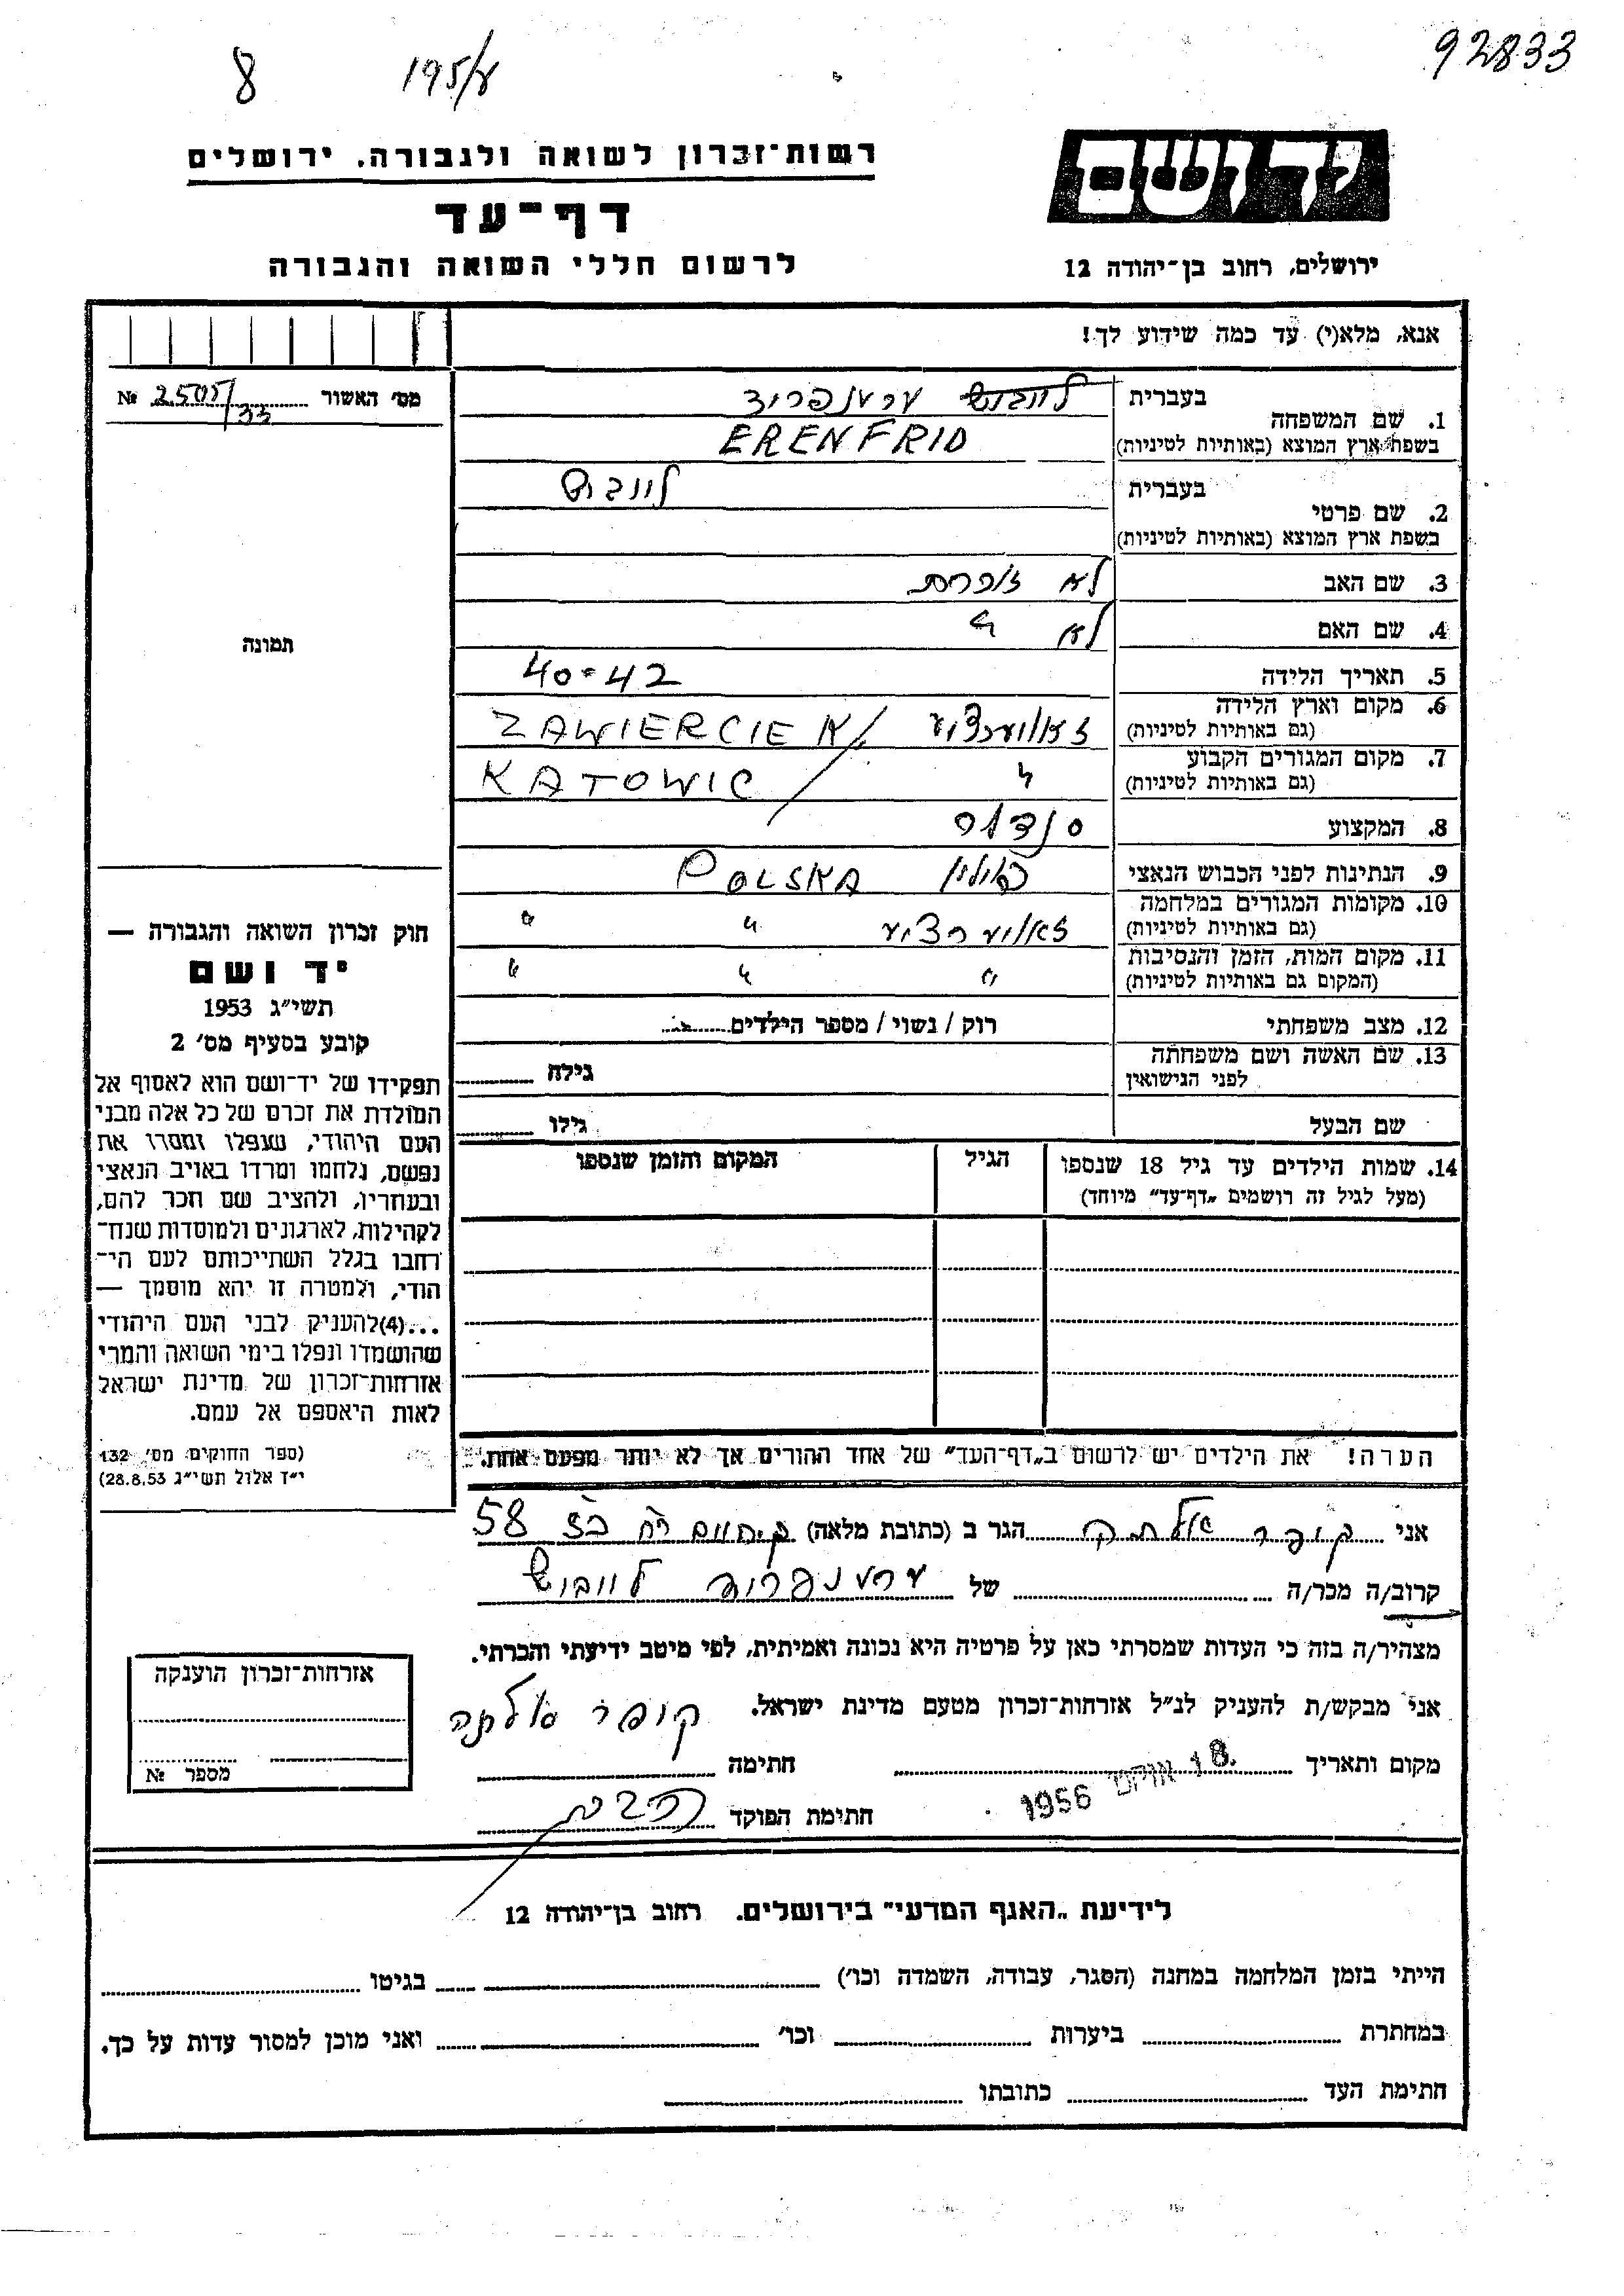 92833
195/8
8
יד ושם
ירושלים, רחוב בן־יהודה 12
רשות־זכרון לשואה ולגבורה, ירושלים
דף־עד
לרשום חללי השואה והגבורה
אנא, מלא(י) עד כמה שידוע לך!
מס׳ האשור 2505/33 №
1. שם המשפחה
בעברית לייבוש ערענפריד
בשפת ארץ המוצא (באותיות לטיניות) ERENFRID
2. שם פרטי
בעברית לייבוש
בשפת ארץ המוצא (באותיות לטיניות)
3. שם האב לא זוכרת
4. שם האם לא "
5. תאריך הלידה 40-42
6. מקום וארץ הלידה (גם באותיות לטיניות) זאוויערציע ZAWIERCIE K/
7. מקום המגורים הקבוע (גם באותיות לטיניות) " KATOWIC
8. המקצוע סנדלר
9. הנתינות לפני הכבוש הנאצי פולין POLSKA
10. מקומות המגורים במלחמה (גם באותיות לטיניות) זאוויערציע " "
11. מקום המות, הזמן והנסיבות (המקום גם באותיות לטיניות) " " "
12. מצב משפחתי רוק / נשוי / מספר הילדים
13. שם האשה ושם משפחתה לפני הנישואין גילה
שם הבעל גילו
14. שמות הילדים עד גיל 18 שנספו (מעל לגיל זה רושמים „דף־עד״ מיוחד)
הגיל
המקום והזמן שנספו
תמונה
חוק זכרון השואה והגבורה —
יד ושם
תשי״ג 1953
קובע בסעיף מס׳ 2
תפקידו של יד־ושם הוא לאסוף אל
המולדת את זכרם של כל אלה מבני
העם היהודי, שנפלו ומסרו את
נפשם, נלחמו ומרדו באויב הנאצי
ובעוזריו, ולהציב שם וזכר להם,
לקהילות, לארגונים ולמוסדות שנח־
רבו בגלל השתייכותם לעם הי־
הודי, ולמטרה זו יהא מוסמך —
...(4) להעניק לבני העם היהודי
שהושמדו ונפלו בימי השואה והמרי
אזרחות־זכרון של מדינת ישראל
לאות היאספם אל עמם.
(ספר החוקים מס׳ 132
י״ד אלול תשי״ג 28.8.53)
הערה! את הילדים יש לרשום ב„דף־העד״ של אחד ההורים אך לא יותר מפעם אחת.
אני קופר הגר ב (כתובת מלאה) 58
קרוב/ה מכר/ה של ערענפריד לייבוש
מצהיר/ה בזה כי העדות שמסרתי כאן על פרטיה היא נכונה ואמיתית, לפי מיטב ידיעתי והכרתי.
אני מבקש/ת להעניק לנ״ל אזרחות־זכרון מטעם מדינת ישראל. קופר
מקום ותאריך 18 אוקט 1956 חתימה
חתימת הפוקד
אזרחות־זכרון הוענקה
מספר №
לידיעת „האגף המדעי״ בירושלים. רחוב בן־יהודה 12
הייתי בזמן המלחמה במחנה (הסגר, עבודה, השמדה וכו׳) בגיטו
במחתרת ביערות וכו׳ ואני מוכן למסור עדות על כך.
חתימת העד כתובתו